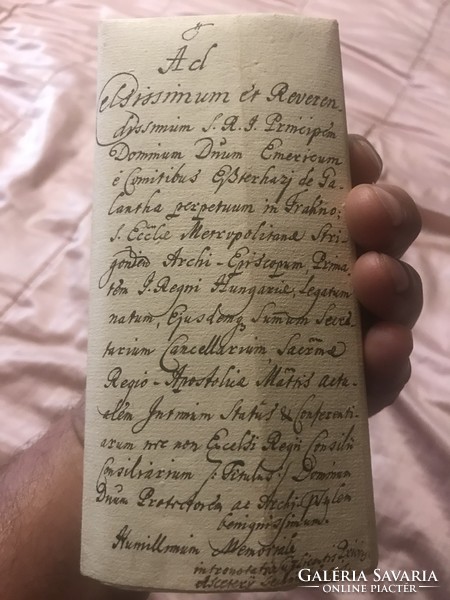 Ad
Celsissimum et Reveren-
dissimum S. R. I. Principem
Dominum Dnum Emericum
è Comitibus Eszterhazj de Ga-
lantha perpetuum in Frakno:
S. Eccłæ Metropolitanæ Stri-
goniens Archi-Episcopum, Prima
tem I. Regni Hungariæ, legatum
natum, Ejusdemq Sumum Secre-
tarium Cancellarium, Sacrmæ
Regio-Apostolicæ Mattis actu-
alem Intimum Status & Conferenti-
arum nec non Excelsi Regii Consilii
Consiliarium /: Titulus :/ Dominum
Dnum Protectorem ac Archi-Epulem
benignissimum.
Humillimum Memoriale
intronotati
GALÉRIA SAVARIA
ONLINE PIACTÉR